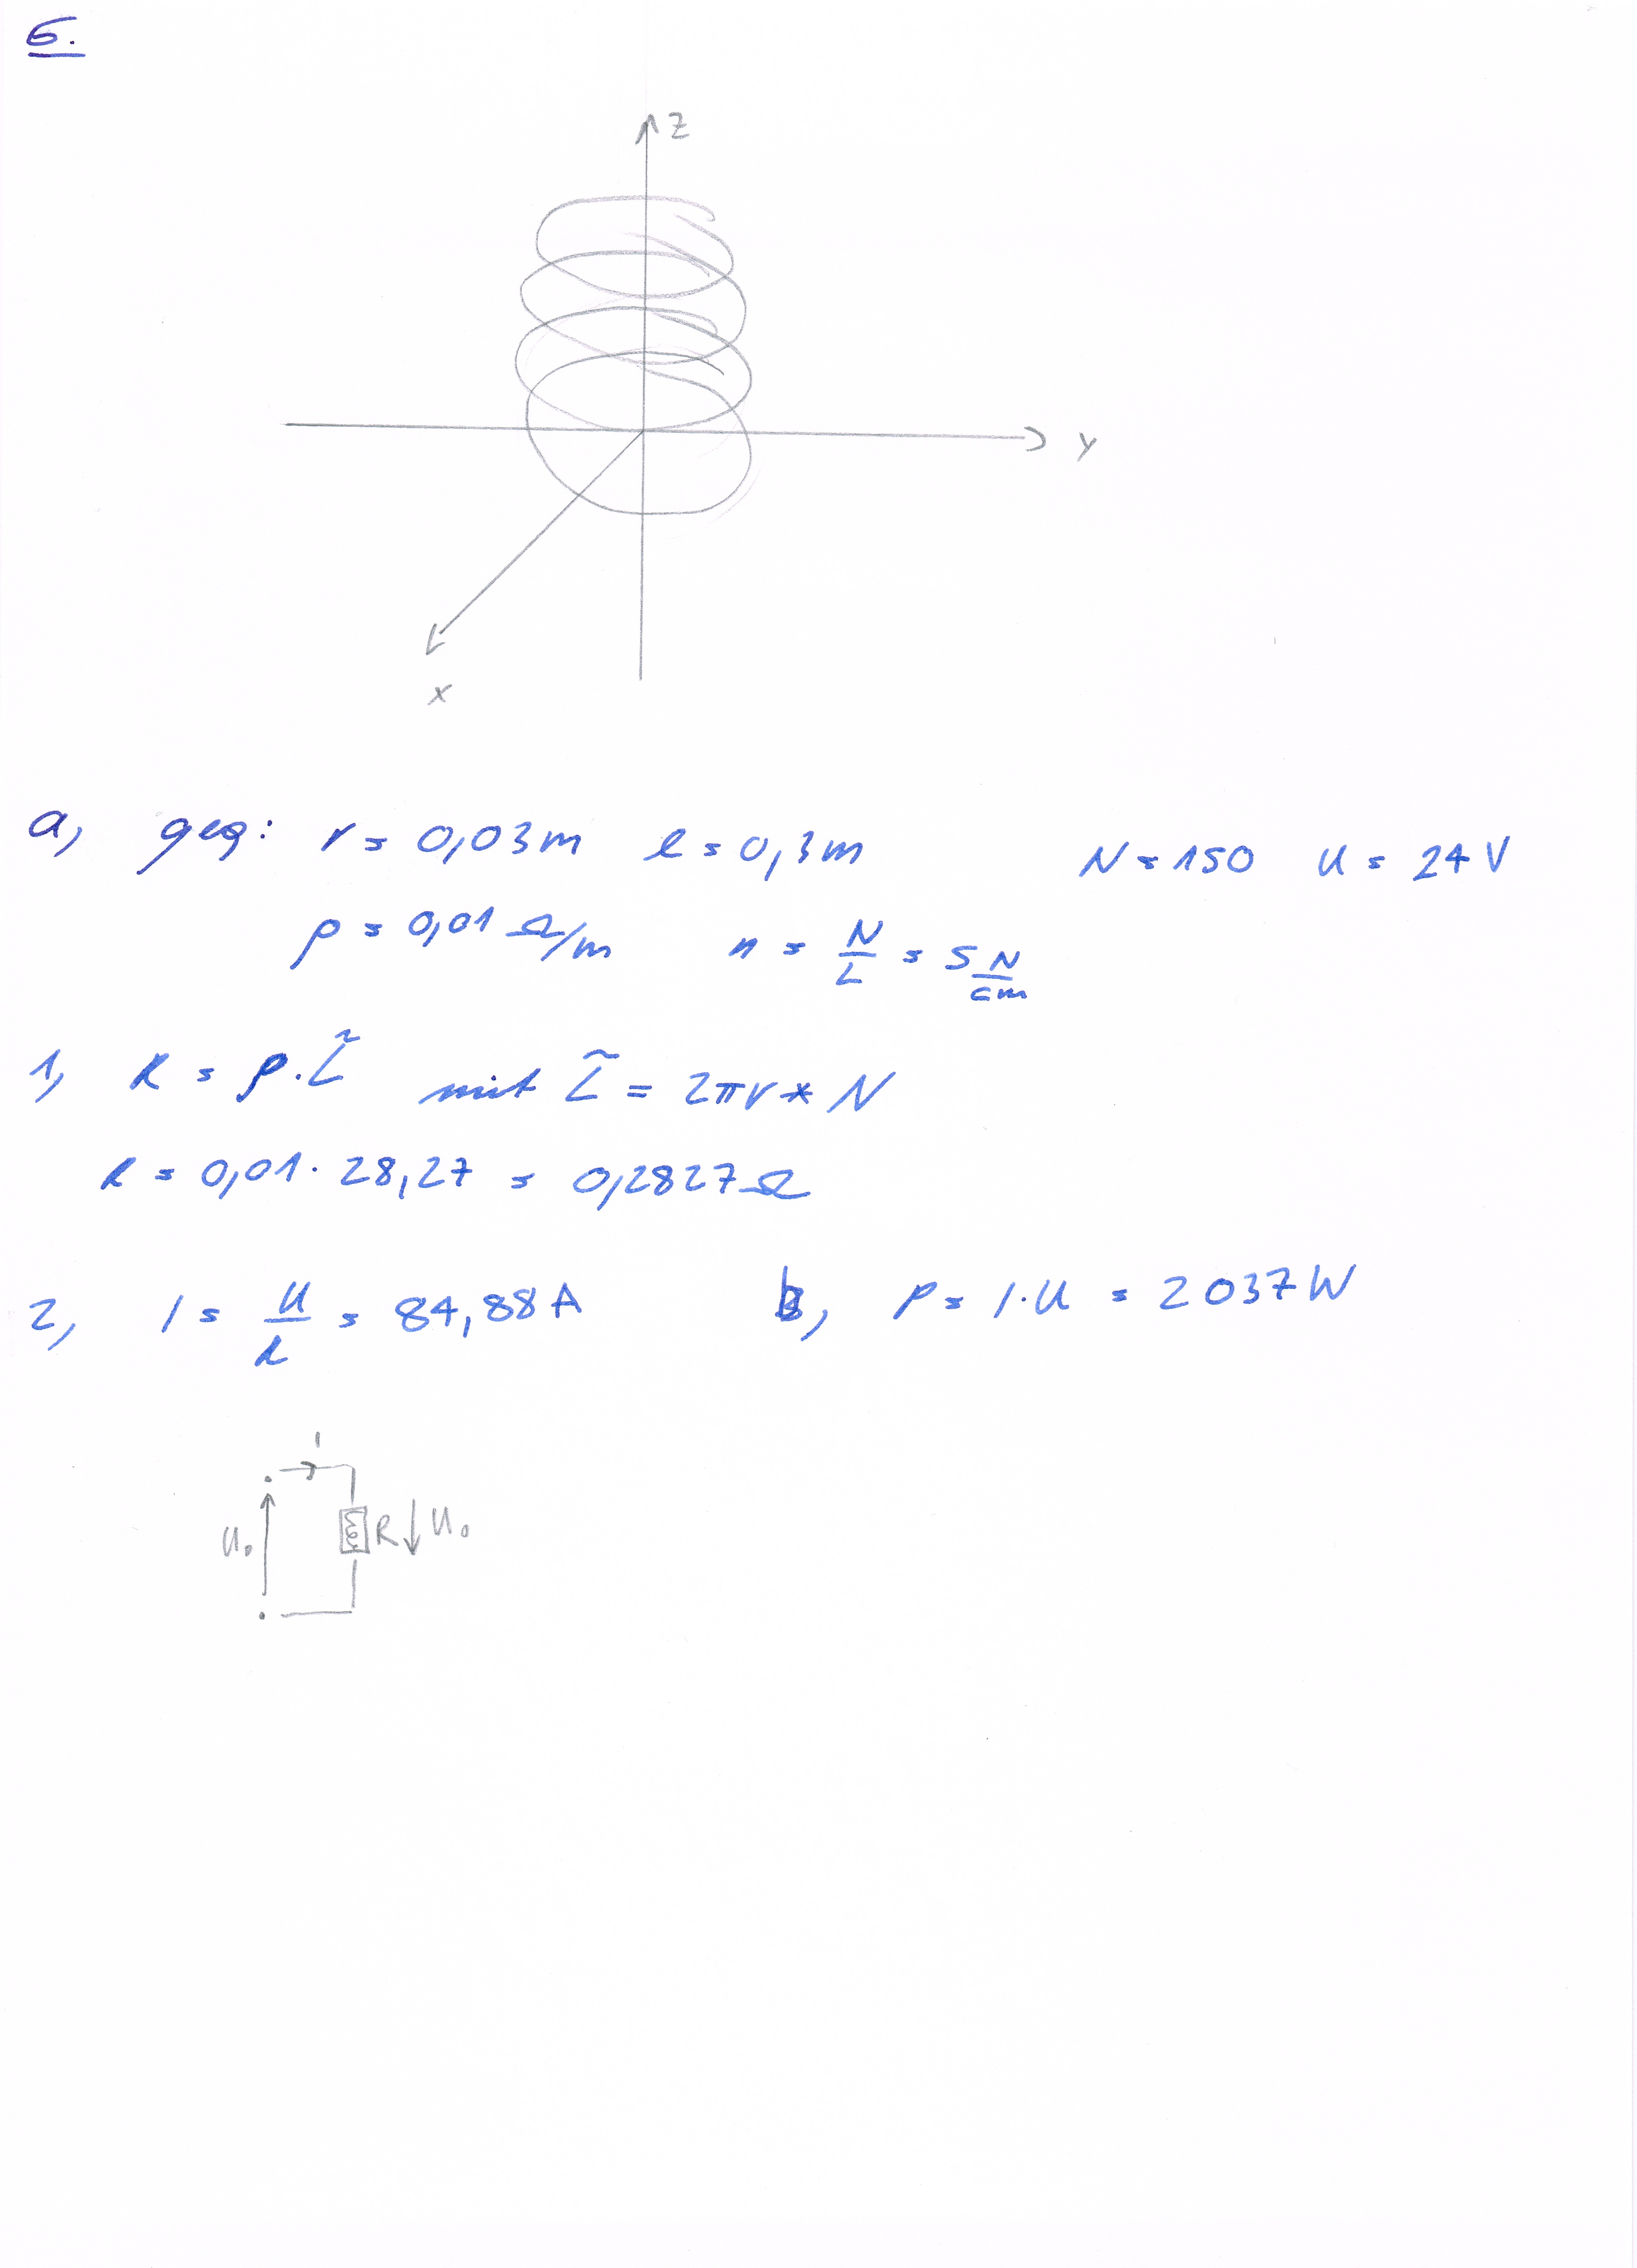 6.
z
y
x
a, geg: r = 0,03m l = 0,3m N = 150 U = 24 V
ρ = 0,01 Ω/m n = N/L = 5 N/cm
1, R = ρ · L̃ mit L̃ = 2πr * N
R = 0,01 · 28,27 = 0,2827 Ω
2, I = U/R = 84,88 A b, P = I · U = 2037 W
I
U₀ R U₀